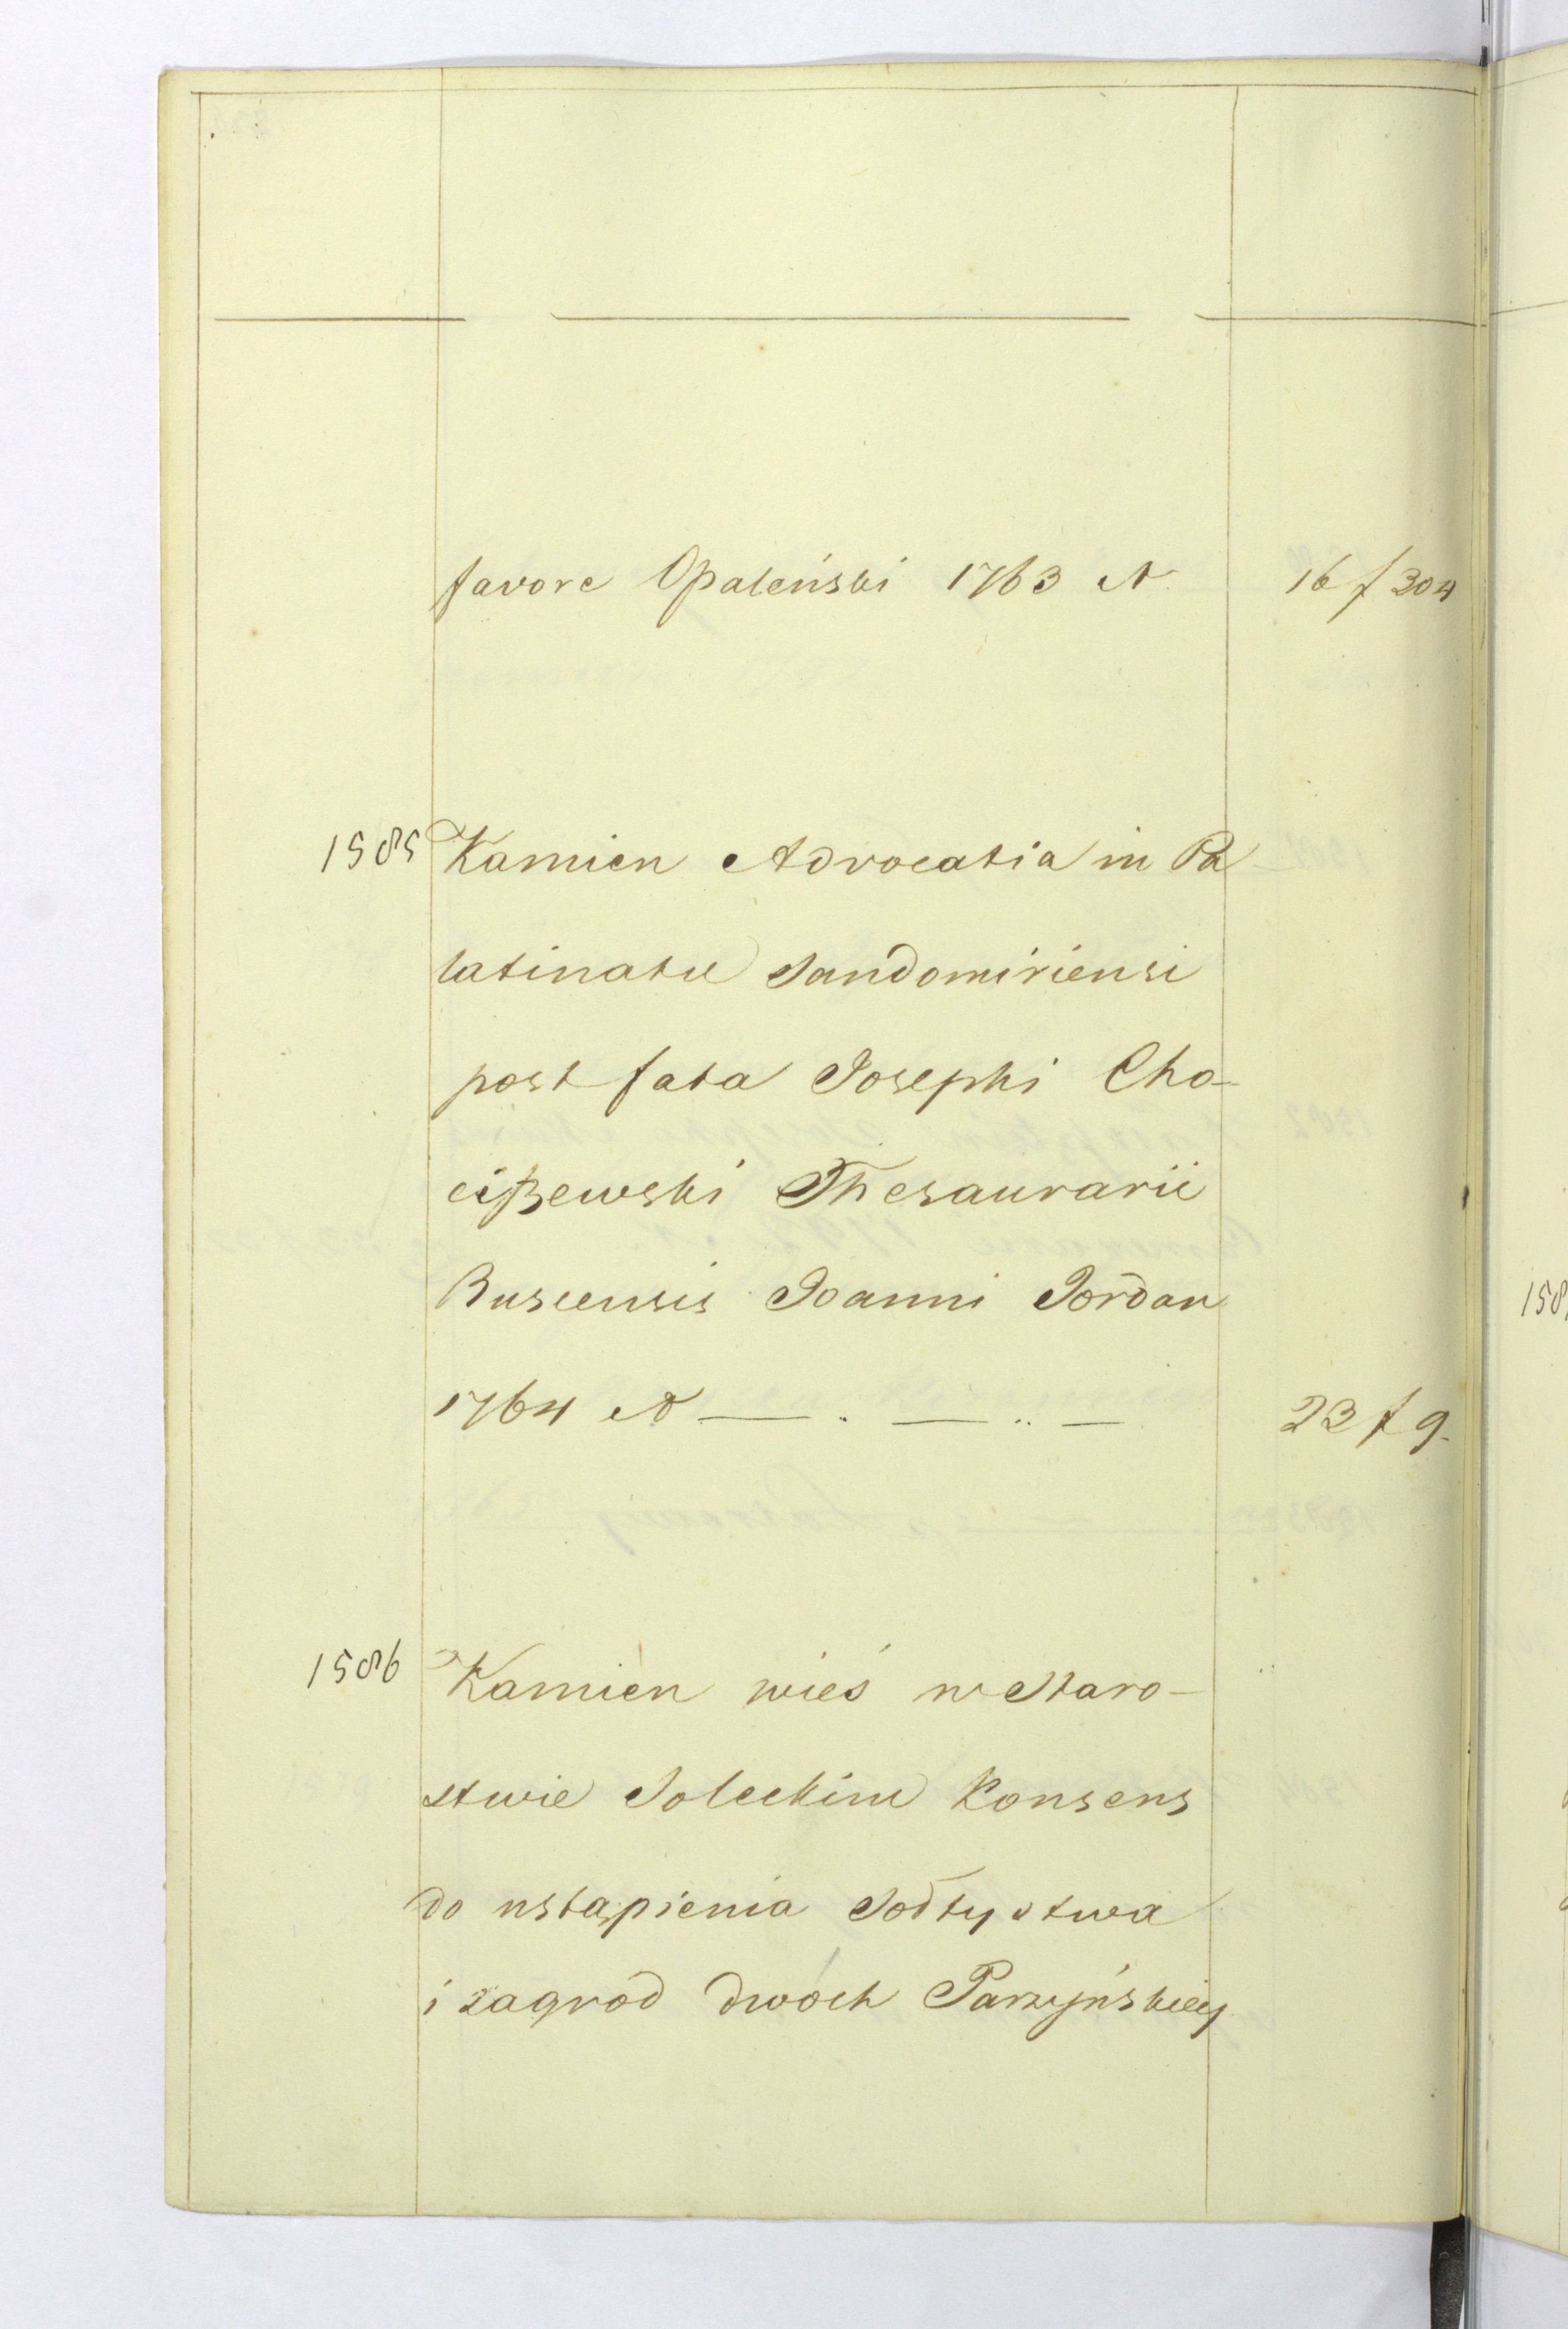 favore Opaleński 1763 N. 16 f 304
1585 Kamien Advocatia in Pa
latinatu Sandomiriensi
post fata Josephi Cho-
cißewski Thesaurarii
Buscensis Joanni Jordan
1764 N — . — .. — 23 f 9.
1586 Kamien wieś w Staro-
stwie Soleckim Konsens
do ustąpienia Sołtystwa
i zagród dwóch Parzyńskiey
158